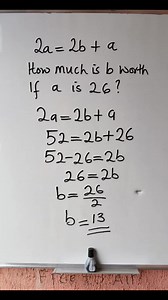 2a = 2b + a
How much is b worth
If a is 26?
2a = 2b + a
52 = 2b + 26
52 - 26 = 2b
26 = 2b
b = 26/2
b = 13